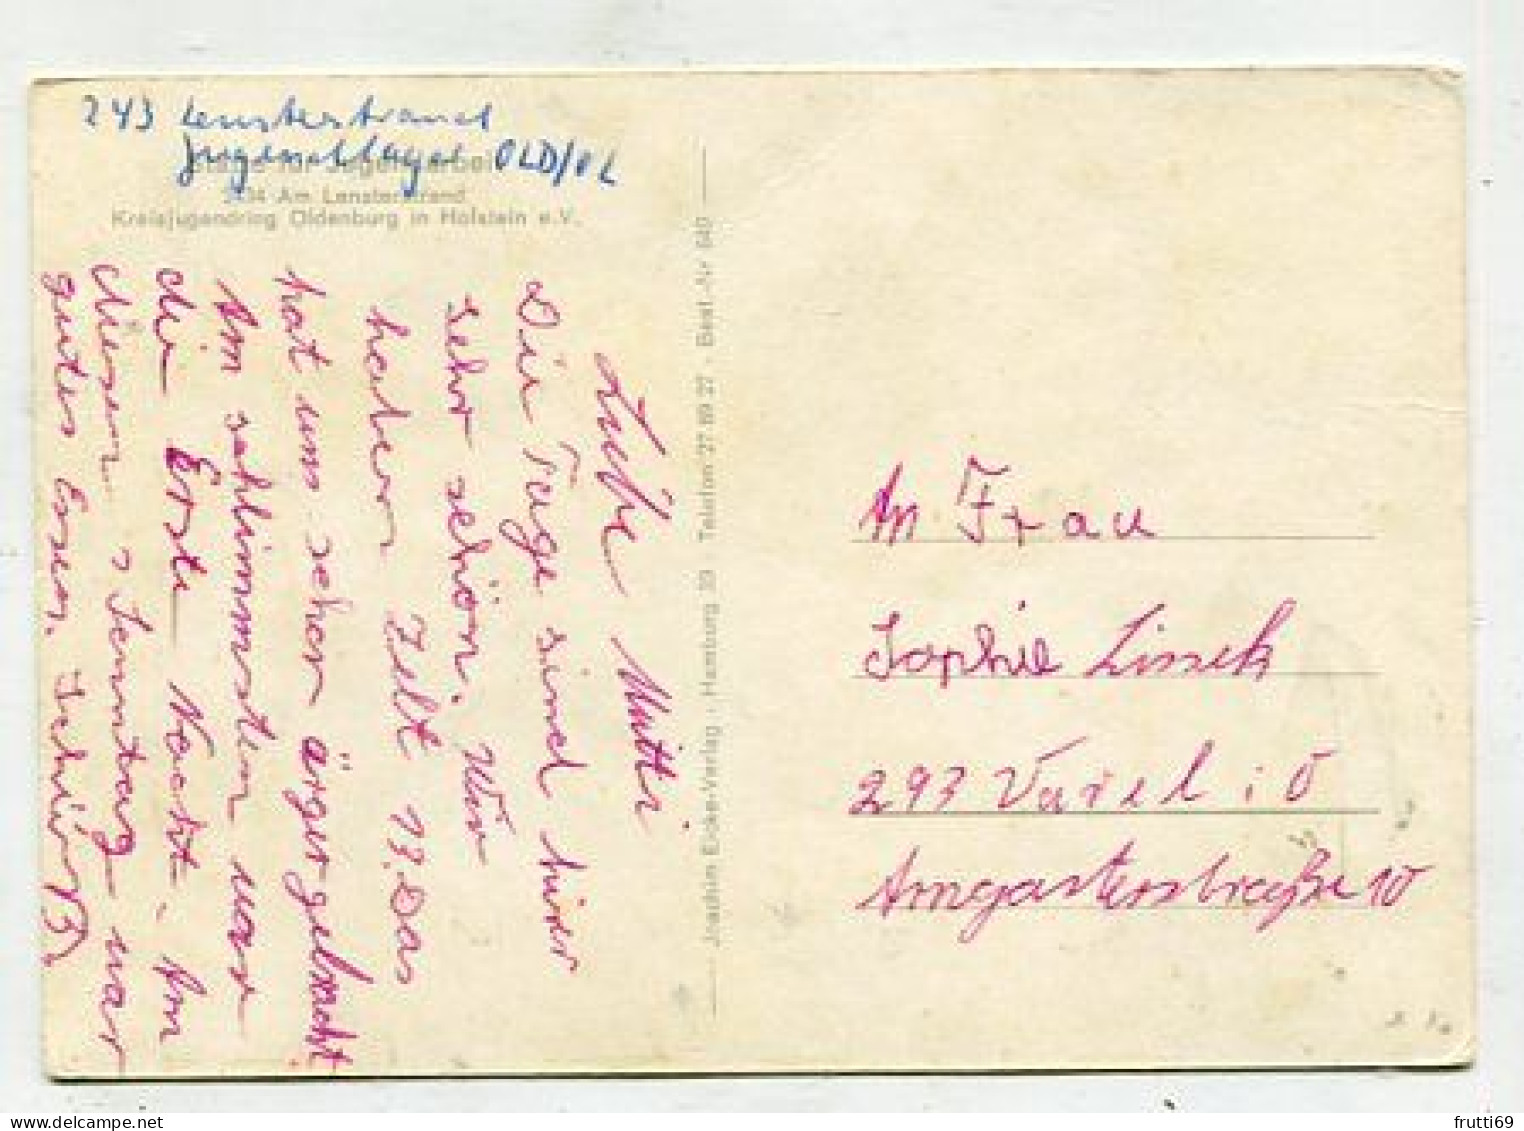 243 Lensterstrand
Jugendlager OLD/OL
Stätte für Jugendarbeit
Am Lensterstrand
Kreisjugendring Oldenburg in Holstein e.V.
Liebe Mutti
Die Tage sind hier
sehr schön. Wir
haben Zelt 13. Das
hat uns schon ärger gemacht
Am schlimmsten war
die Erste Nacht. Am
Sonntag war
gutes Essen.
Joachim Eicke-Verlag · Hamburg 33 · Telefon 27 69 27 · Best.-Nr 640
An Frau
Sophie Linck
293 Varel i O
Amgasterstraße 10
frutti69